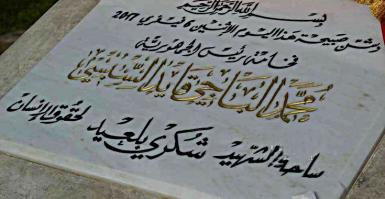 بسم الله الرحمن الرحيم
دشن صبيحة هذا اليوم الاثنين 6 فيفري 2017
فخامة رئيس الجمهورية
محمد الباجي قايد السبسي
ساحة الشهيد شكري بلعيد لحقوق الإنسان